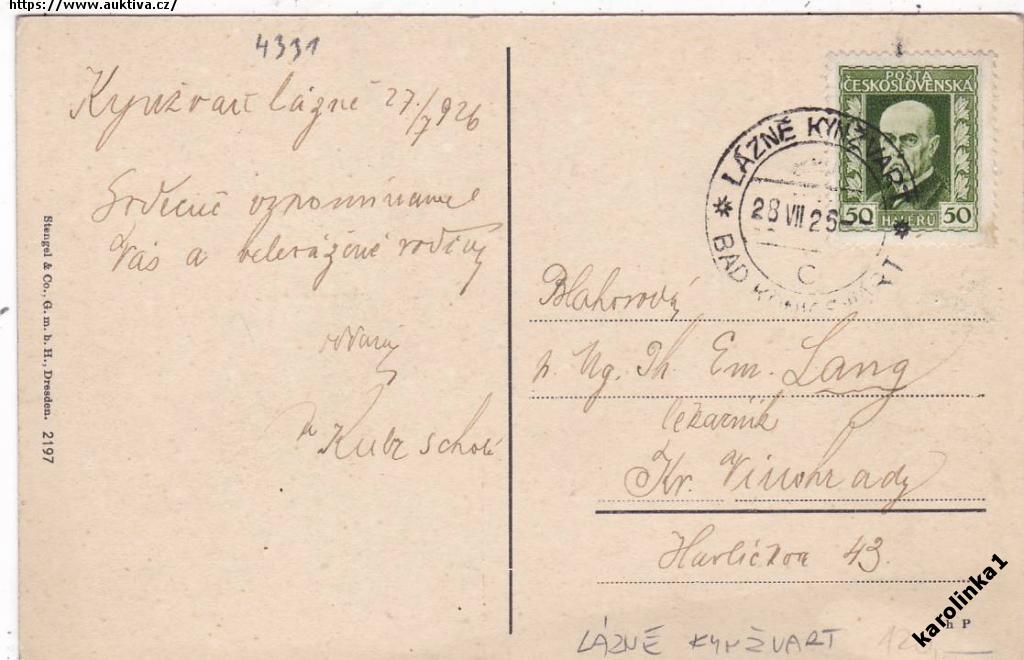 https://www.auktiva.cz/
4331
Kynžvart lázně 27/7 926
Srdečně vzpomínáme
Vás a velevážené rodiny
Stengel & Co., G. m. b. H., Dresden. 2197
POŠTA
ČESKOSLOVENSKÁ
50 HALÉŘŮ 50
LÁZNĚ KYNŽVART
28 VII 26
C
BAD
Blahorodý
p. Mg. Ph. Em. Lang
lékárník
Kr. Vinohrady
Havlíčkova 43.
karolinka1
h P
LÁZNĚ KYNŽVART